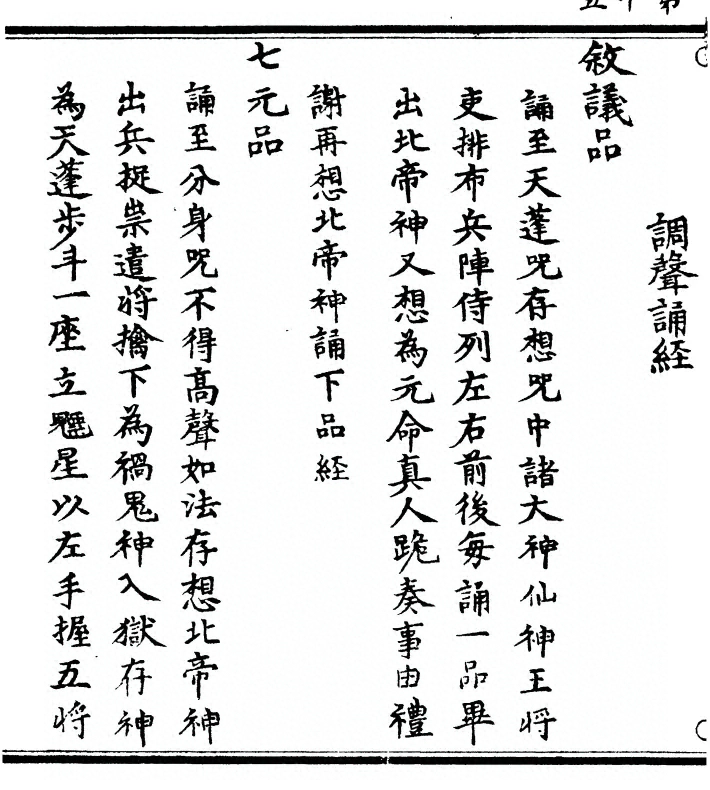 調聲誦経
敘議品
誦至天蓬咒存想咒中諸大神仙神王将
吏排布兵陣侍列左右前後每誦一品畢
出北帝神又想為元命真人跪奏事由禮
謝再想北帝神誦下品經
七元品
誦至分身咒不得高聲如法存想北帝神
出兵捉祟遣将擒下為禍鬼神入獄存神
為天蓬步斗一座立魒星以左手握五将